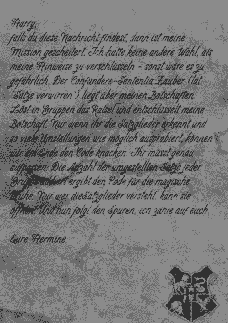 Harry,
falls du diese Nachricht findest, dann ist meine
Mission gescheitert. Ich hatte keine andere Wahl, als
meine Hinweise zu verschlüsseln - sonst wäre es zu
gefährlich. Der Confundere-Sententia Zauber (lat.
"Sätze verwirren") liegt über meinen Botschaften.
Löst in Gruppen das Rätsel und entschlüsselt meine
Botschaft. Nur wenn ihr die Satzglieder erkennt und
so viele Umstellungen wie möglich ausprobiert, können
wir am Ende den Code knacken. Ihr müsst genau
aufpassen: Die Anzahl der umgestellten Sätze jeder
ergibt den Code für die magische
Truhe. Nur wer die Satzglieder versteht, kann sie
öffnen. Und nun folgt den Spuren, ich warte auf euch.
Eure Hermine